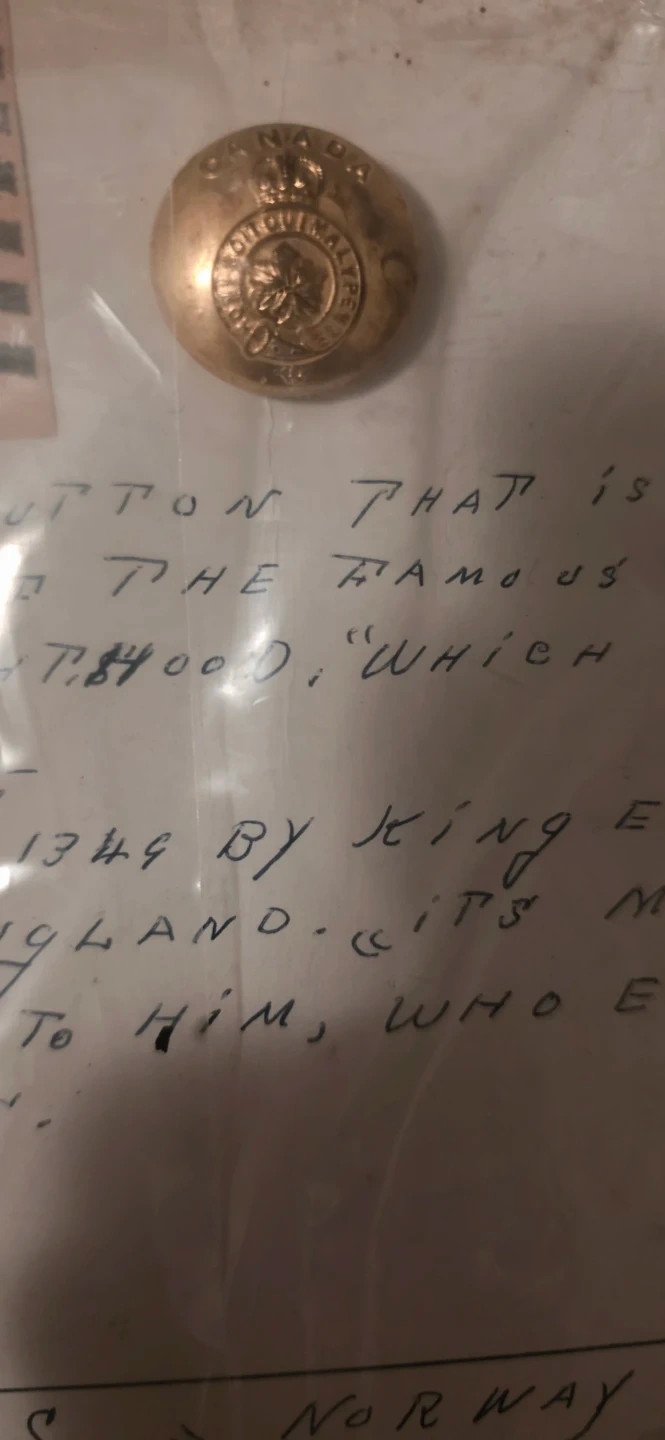 CANADA
HONI SOIT QUI MAL Y PENSE
UTTON THAT iS
THE FAMOUS
HT.HOOD, "WHiCH
1349 BY KiNg E
NgLAND. "iTS M
To HiM, WHO E
NORWAY